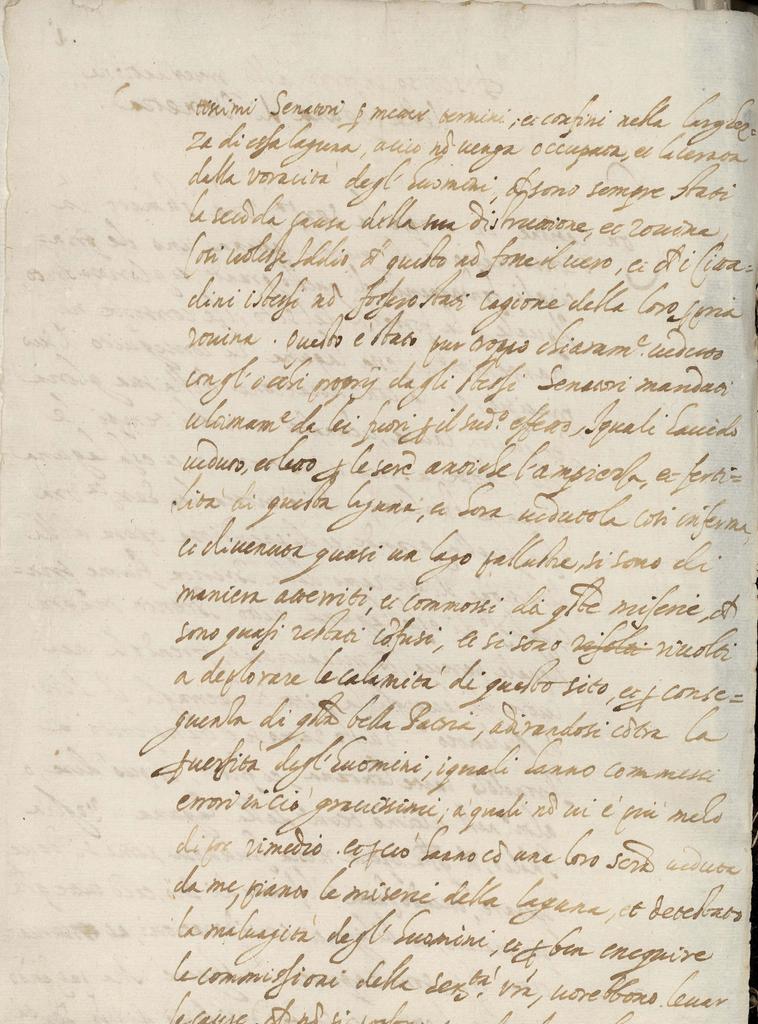 tissimi Senatori p metter termini, et confini nella larghez=
za di essa laguna, acciò nō venga occupata, et lacerata
dalla voracità degl'huomini, che sono sempre stati
la secōda causa della sua distruttione, et rouina,
Così volesse Iddio, che questo nō fosse il vero, et che i Citta=
dini istessi nō fossero stati cagione della loro ppria
rouina. Questo è stato pur troppo chiaram.te veduto
con gl'occhi proprij dagli stessi Senatori mandati
ultimam.te da lei fuori p il sud.o effetto, I quali hauēdo
veduto, et letto p le scrē antiche l'ampiezza, et ferti=
lità di questa laguna, et hora vedutola così inferma,
et diuenuta quasi un lago pallustre, si sono di
maniera atterriti, et commossi da q̄ste miserie, che
sono quasi restati cōfusi, et si sono riuolti
a deplorare le calamità di questo sito, et p conse=
guenza di q̄sta bella Patria, adirandosi cōtra la
puersità degl'huomini, i quali hanno commessi
errori in ciò grauissimi, a' quali nō ui è più modo
di por rimedio. et p ciò hanno cō una loro scrā veduta
da me, pianto le miserie della laguna, et detestato
la maluagità degl'huomini, et p ben eseguire
le commissioni della Ser.tà Vrā, uorebbono leuar
le cause, che nō si